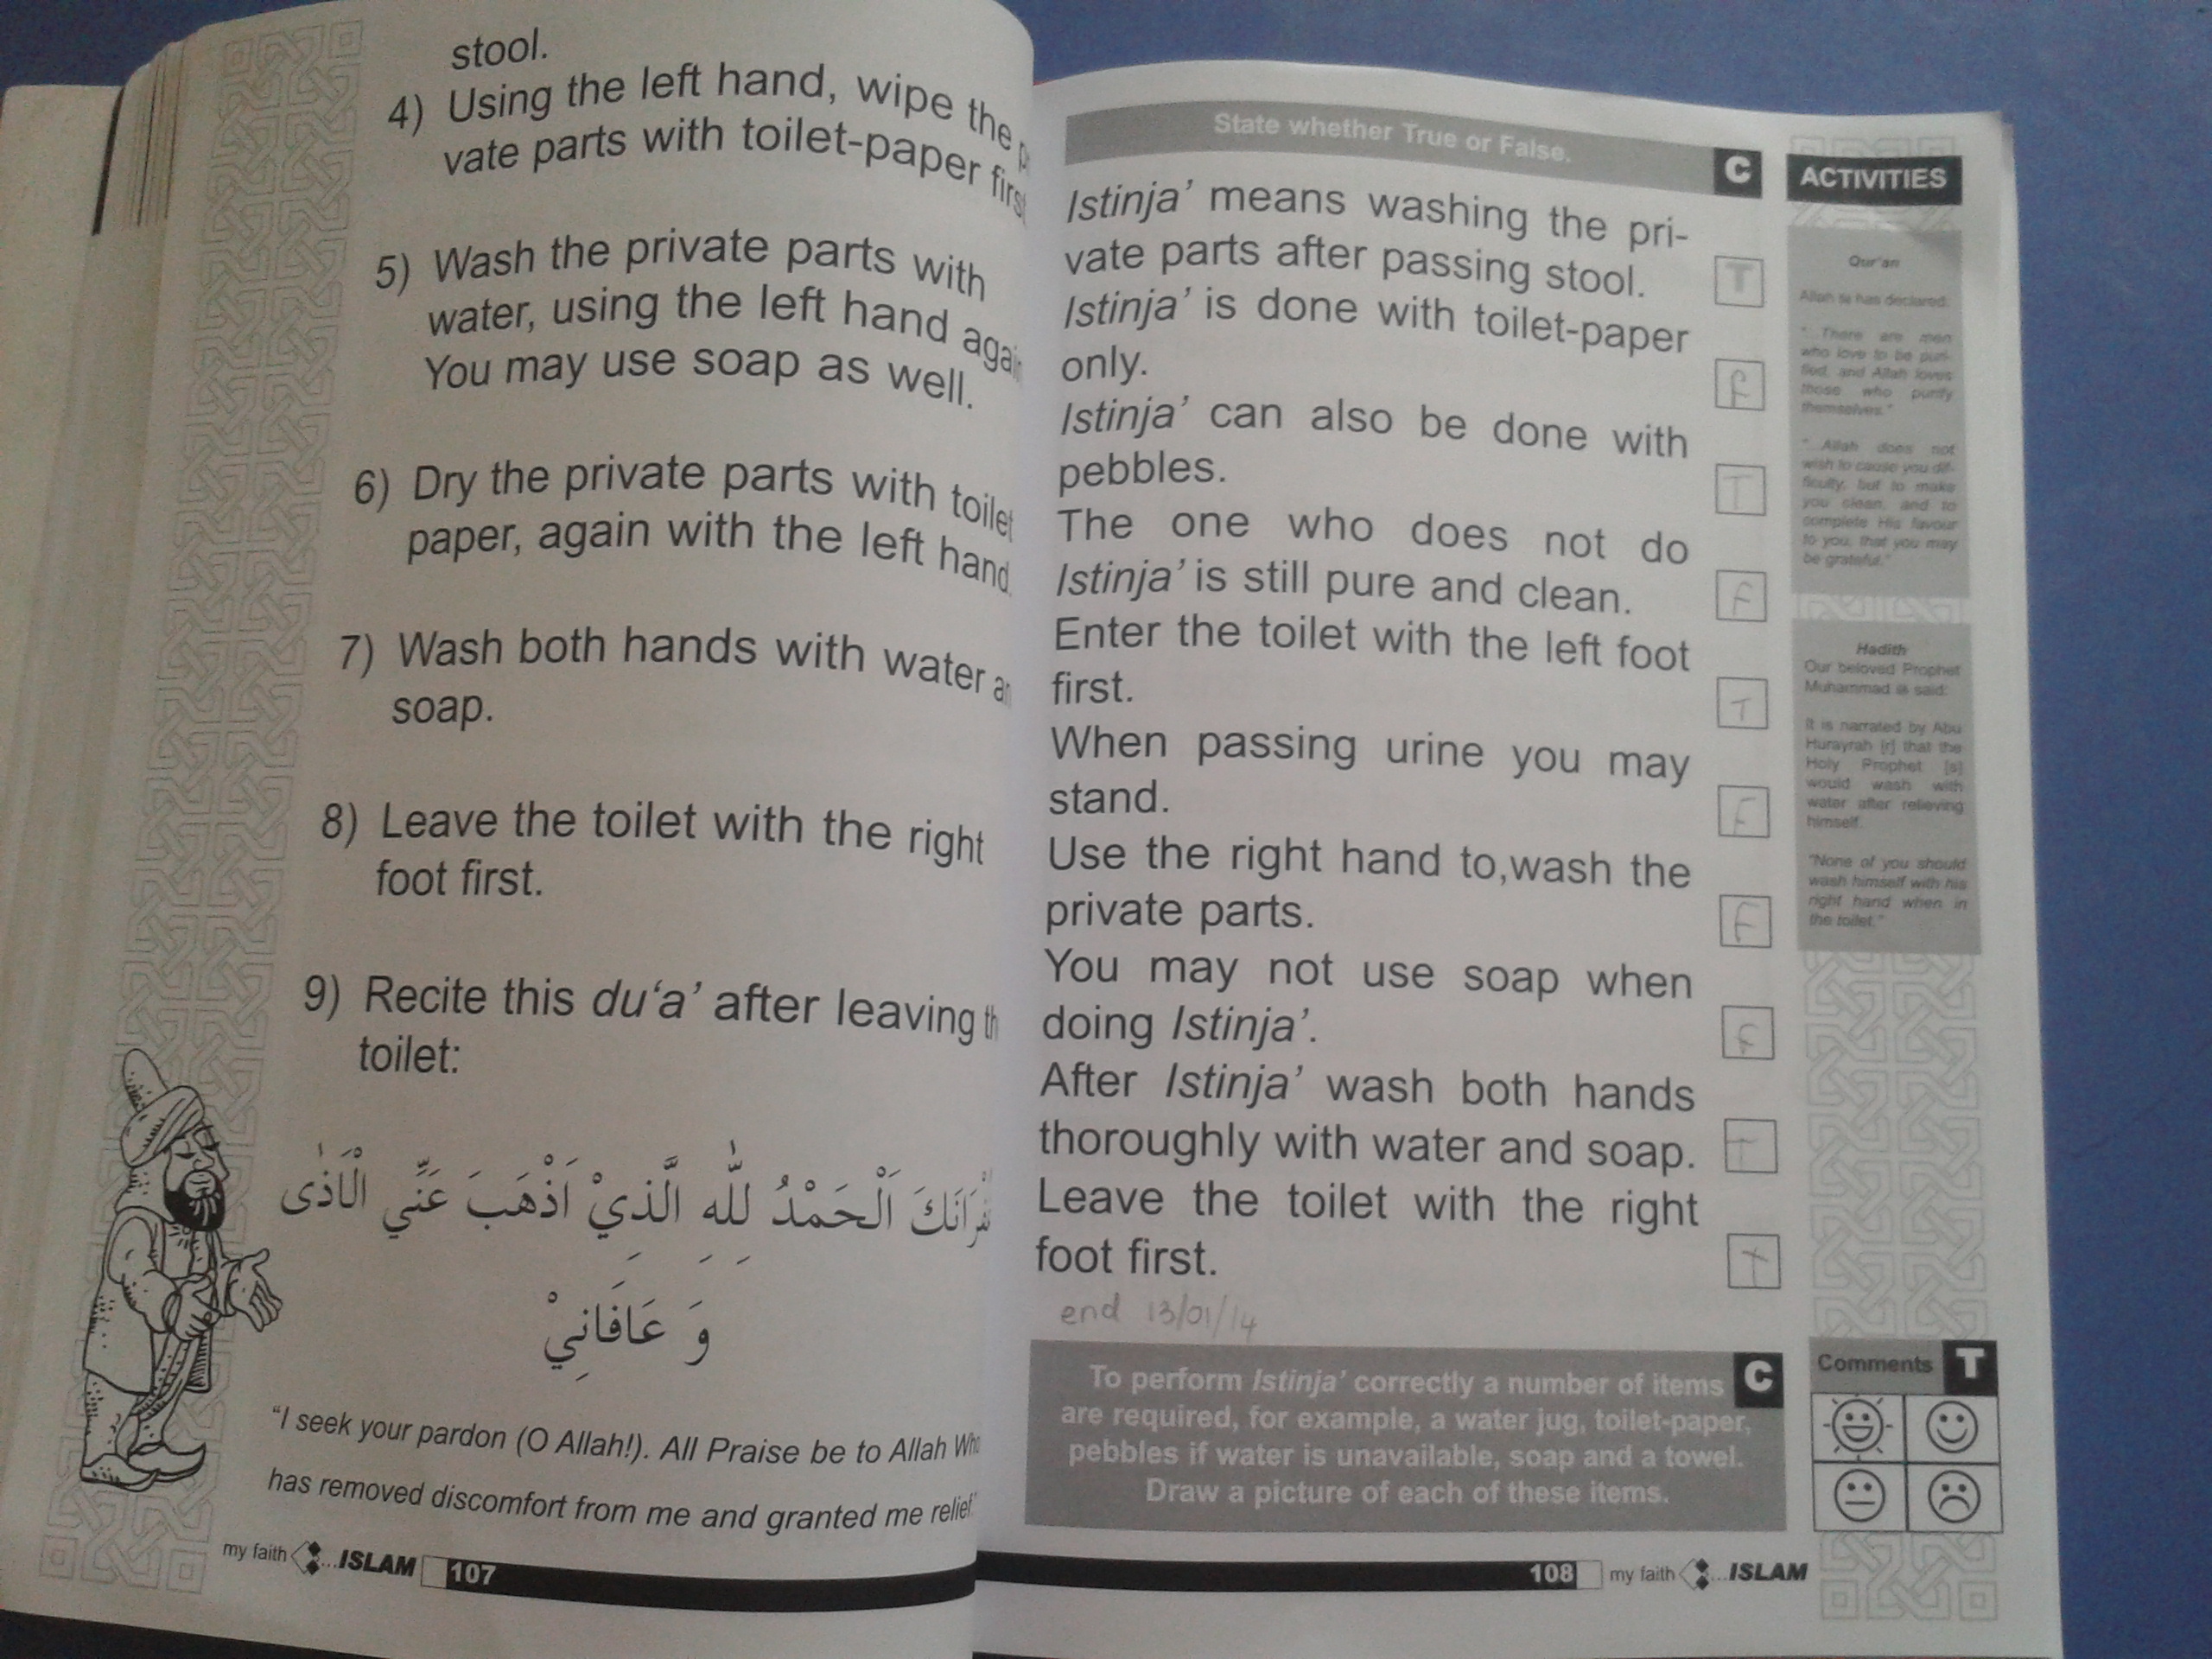 stool.
4) Using the left hand, wipe the
vate parts with toilet-paper first
5) Wash the private parts with
water, using the left hand again
You may use soap as well.
6) Dry the private parts with toilet
paper, again with the left hand
7) Wash both hands with water
soap.
8) Leave the toilet with the right
foot first.
9) Recite this du‘a’ after leaving
toilet:
اَلْحَمْدُ لِلّٰهِ الَّذِيْ اَذْهَبَ عَنِّي الْاَذٰى
وَ عَافَانِيْ
“I seek your pardon (O Allah!). All Praise be to Allah Who
has removed discomfort from me and granted me relief
my faith ...ISLAM 107
State whether True or False. C
Istinja’ means washing the pri-
vate parts after passing stool. T
Istinja’ is done with toilet-paper
only. F
Istinja’ can also be done with
pebbles. T
The one who does not do
Istinja’ is still pure and clean. F
Enter the toilet with the left foot
first. T
When passing urine you may
stand. F
Use the right hand to,wash the
private parts. F
You may not use soap when
doing Istinja’. F
After Istinja’ wash both hands
thoroughly with water and soap. T
Leave the toilet with the right
foot first. T
end 13/01/14
To perform Istinja’ correctly a number of items C
are required, for example, a water jug, toilet-paper,
pebbles if water is unavailable, soap and a towel.
Draw a picture of each of these items.
108 my faith ...ISLAM
ACTIVITIES
Qur'an
Allah has declared:
"...There are men
who love to be puri-
fied, and Allah loves
those who purify
themselves."
"...Allah does not
wish to cause you dif-
ficulty, but to make
you clean, and to
complete His favour
to you, that you may
be grateful."
Hadith
Our beloved Prophet
Muhammad said:
It is narrated by Abu
Hurayrah [r] that the
Holy Prophet [s]
would wash with
water after relieving
himself.
"None of you should
wash himself with his
right hand when in
the toilet."
Comments T